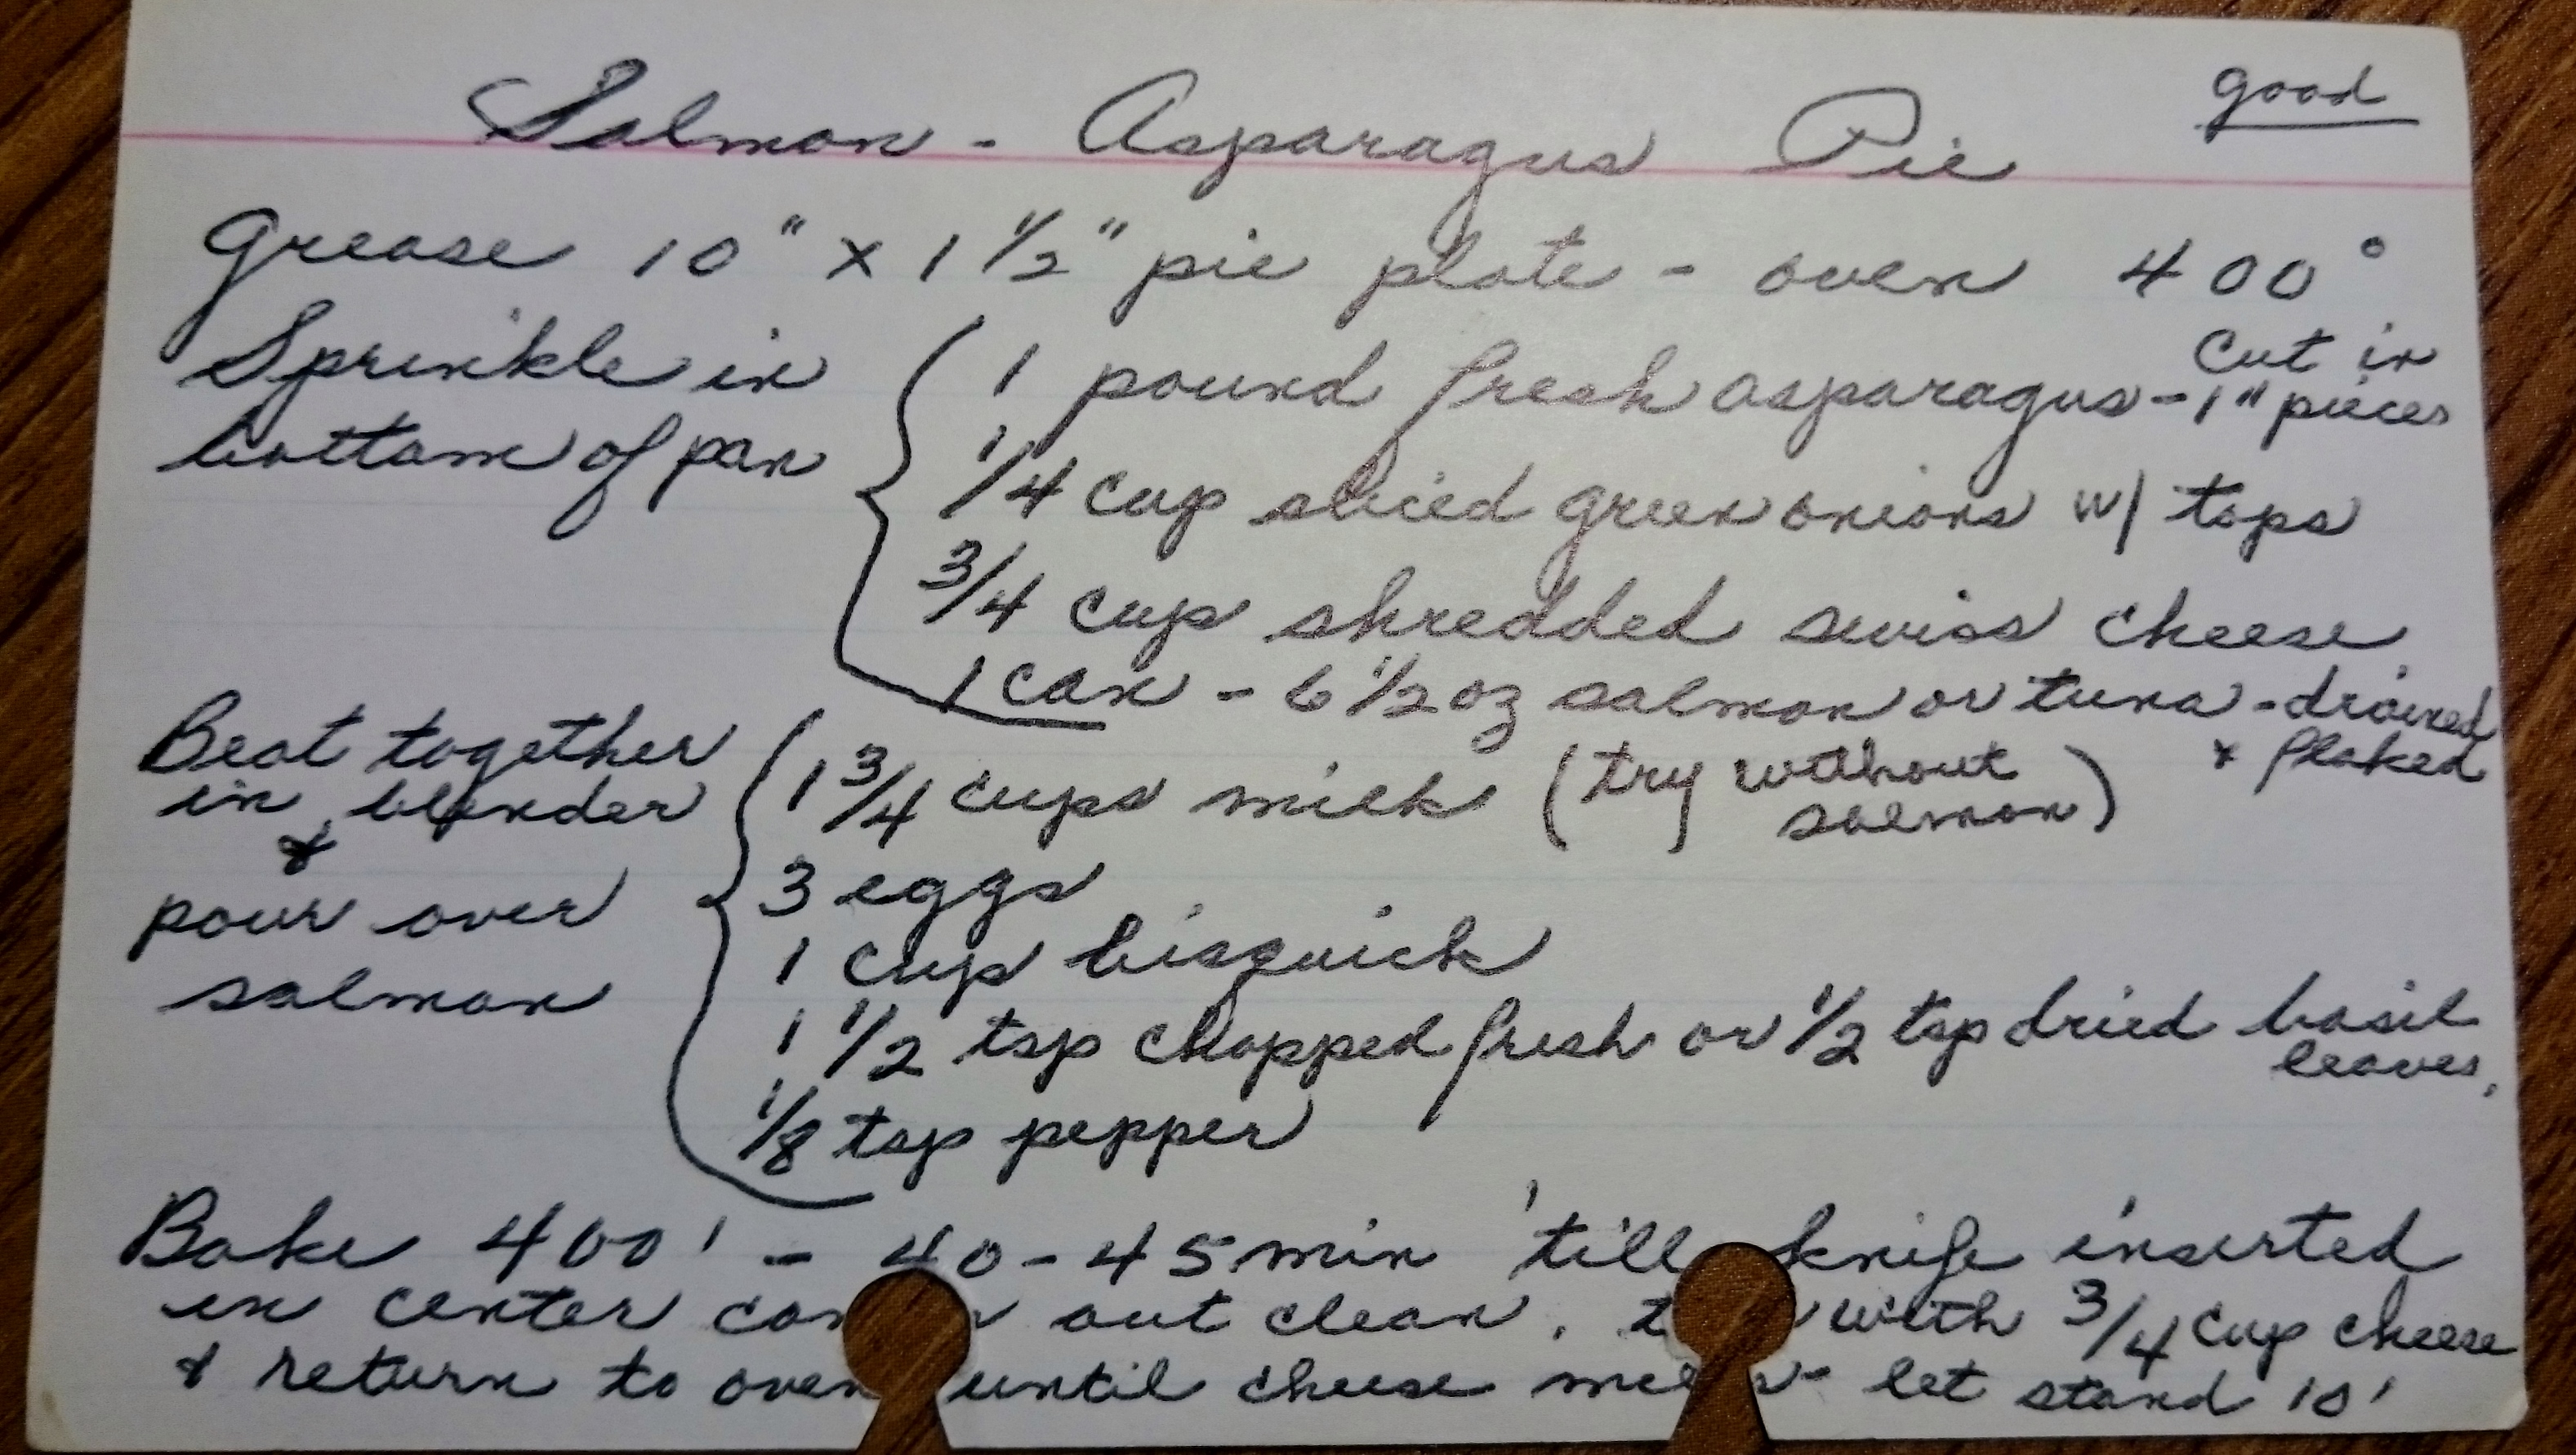 good
Salmon - Asparagus Pie
Grease 10" x 1 1/2" pie plate - oven 400°
Sprinkle in
bottom of pan
1 pound fresh asparagus - cut in
1" pieces
1/4 cup sliced green onions w/ tops
3/4 cup shredded swiss cheese
1 can - 6 1/2 oz salmon or tuna - drained
& flaked
Beat together
in blender
&
pour over
salmon
1 3/4 cups milk (try without
salmon)
3 eggs
1 cup bisquick
1 1/2 tsp chopped fresh or 1/2 tsp dried basil
leaves,
1/8 tsp pepper
Bake 400' - 40-45 min 'till knife inserted
in center out clean. with 3/4 cup cheese
& return to oven until cheese let stand 10'